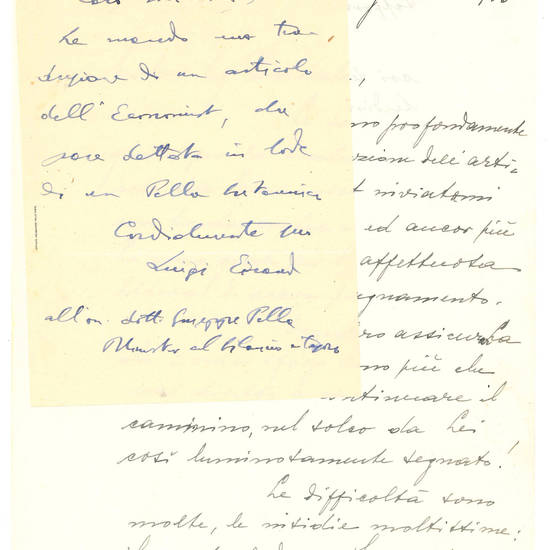 Le mando una tra
duzione di un articolo
dell'Economist, che
pare dettata in lode
di un Pella britannico
Cordialmente suo
Luigi Einaudi
all'on. dott. Giuseppe Pella
Ministro al bilancio e tesoro
no profondamente
zione dell'arti-
t inviatomi
ed ancor più
affettuosa
gnamento.
ro assicurarLa
no più che
ntinuare il
cammino, nel solco da Lei
così luminosamente segnato!
Le difficoltà sono
molte, le insidie moltissime: